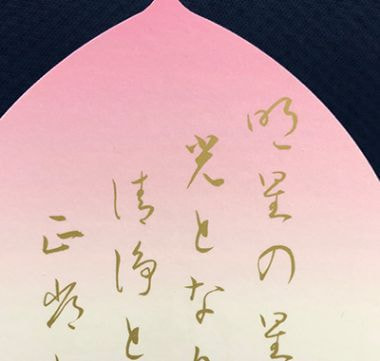 明星の星
光とな
清浄と
正覚